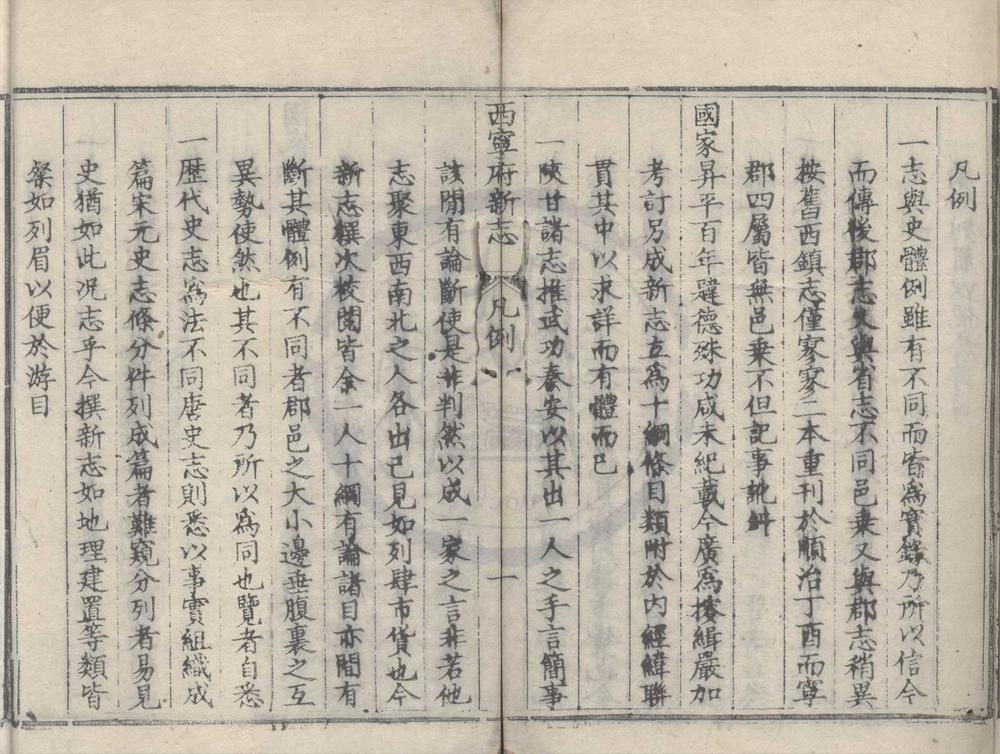 凡例
一志與史體例雖有不同而皆爲實錄乃所以信今
而傳後郡志又與省志不同邑乗又與郡志稍異
按舊西鎮志僅寥寥二本重刊於順治丁酉而寧
郡四屬皆無邑乗不但記事訛舛
國家昇平百年韙德殊功咸未紀載今廣爲搜緝嚴加
考訂另成新志立爲十綱條目類附於内經緯聯
貫其中以求詳而有體而已
一陜甘諸志推武功秦安以其出一人之手言簡事
西寧府新志
凡例
一
該閒有論斷使是非判然以成一家之言非若他
志聚東西南北之人各出己見如列肆市貨也今
新志撰次校閱皆余一人十綱有論諸目亦間有
斷其體例有不同者郡邑之大小邊垂腹裏之互
異勢使然也其不同者乃所以爲同也覽者自悉
一歷代史志爲法不同唐史志則悉以事實組織成
篇宋元史志條分件列成篇者難窺分列者易見
史猶如此况志乎今撰新志如地理建置等類皆
粲如列眉以便於游目